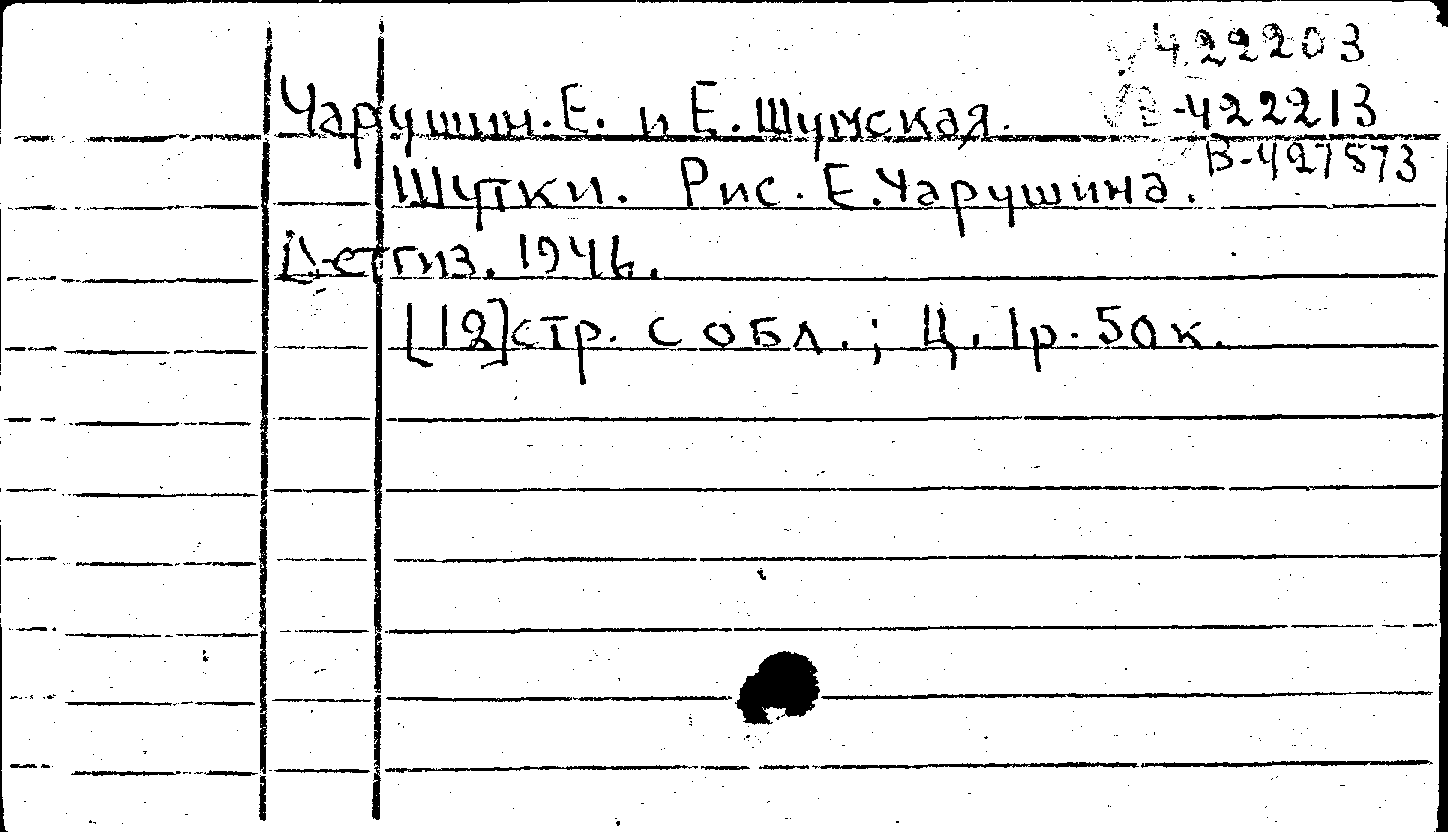 422203
Чарушин. Е. и Е. Шумская.
В-422213
В-427573
Шутки. Рис. Е. Чарушина.
Детгиз. 1946.
[12] стр. с обл.; Ц. 1р. 50к.